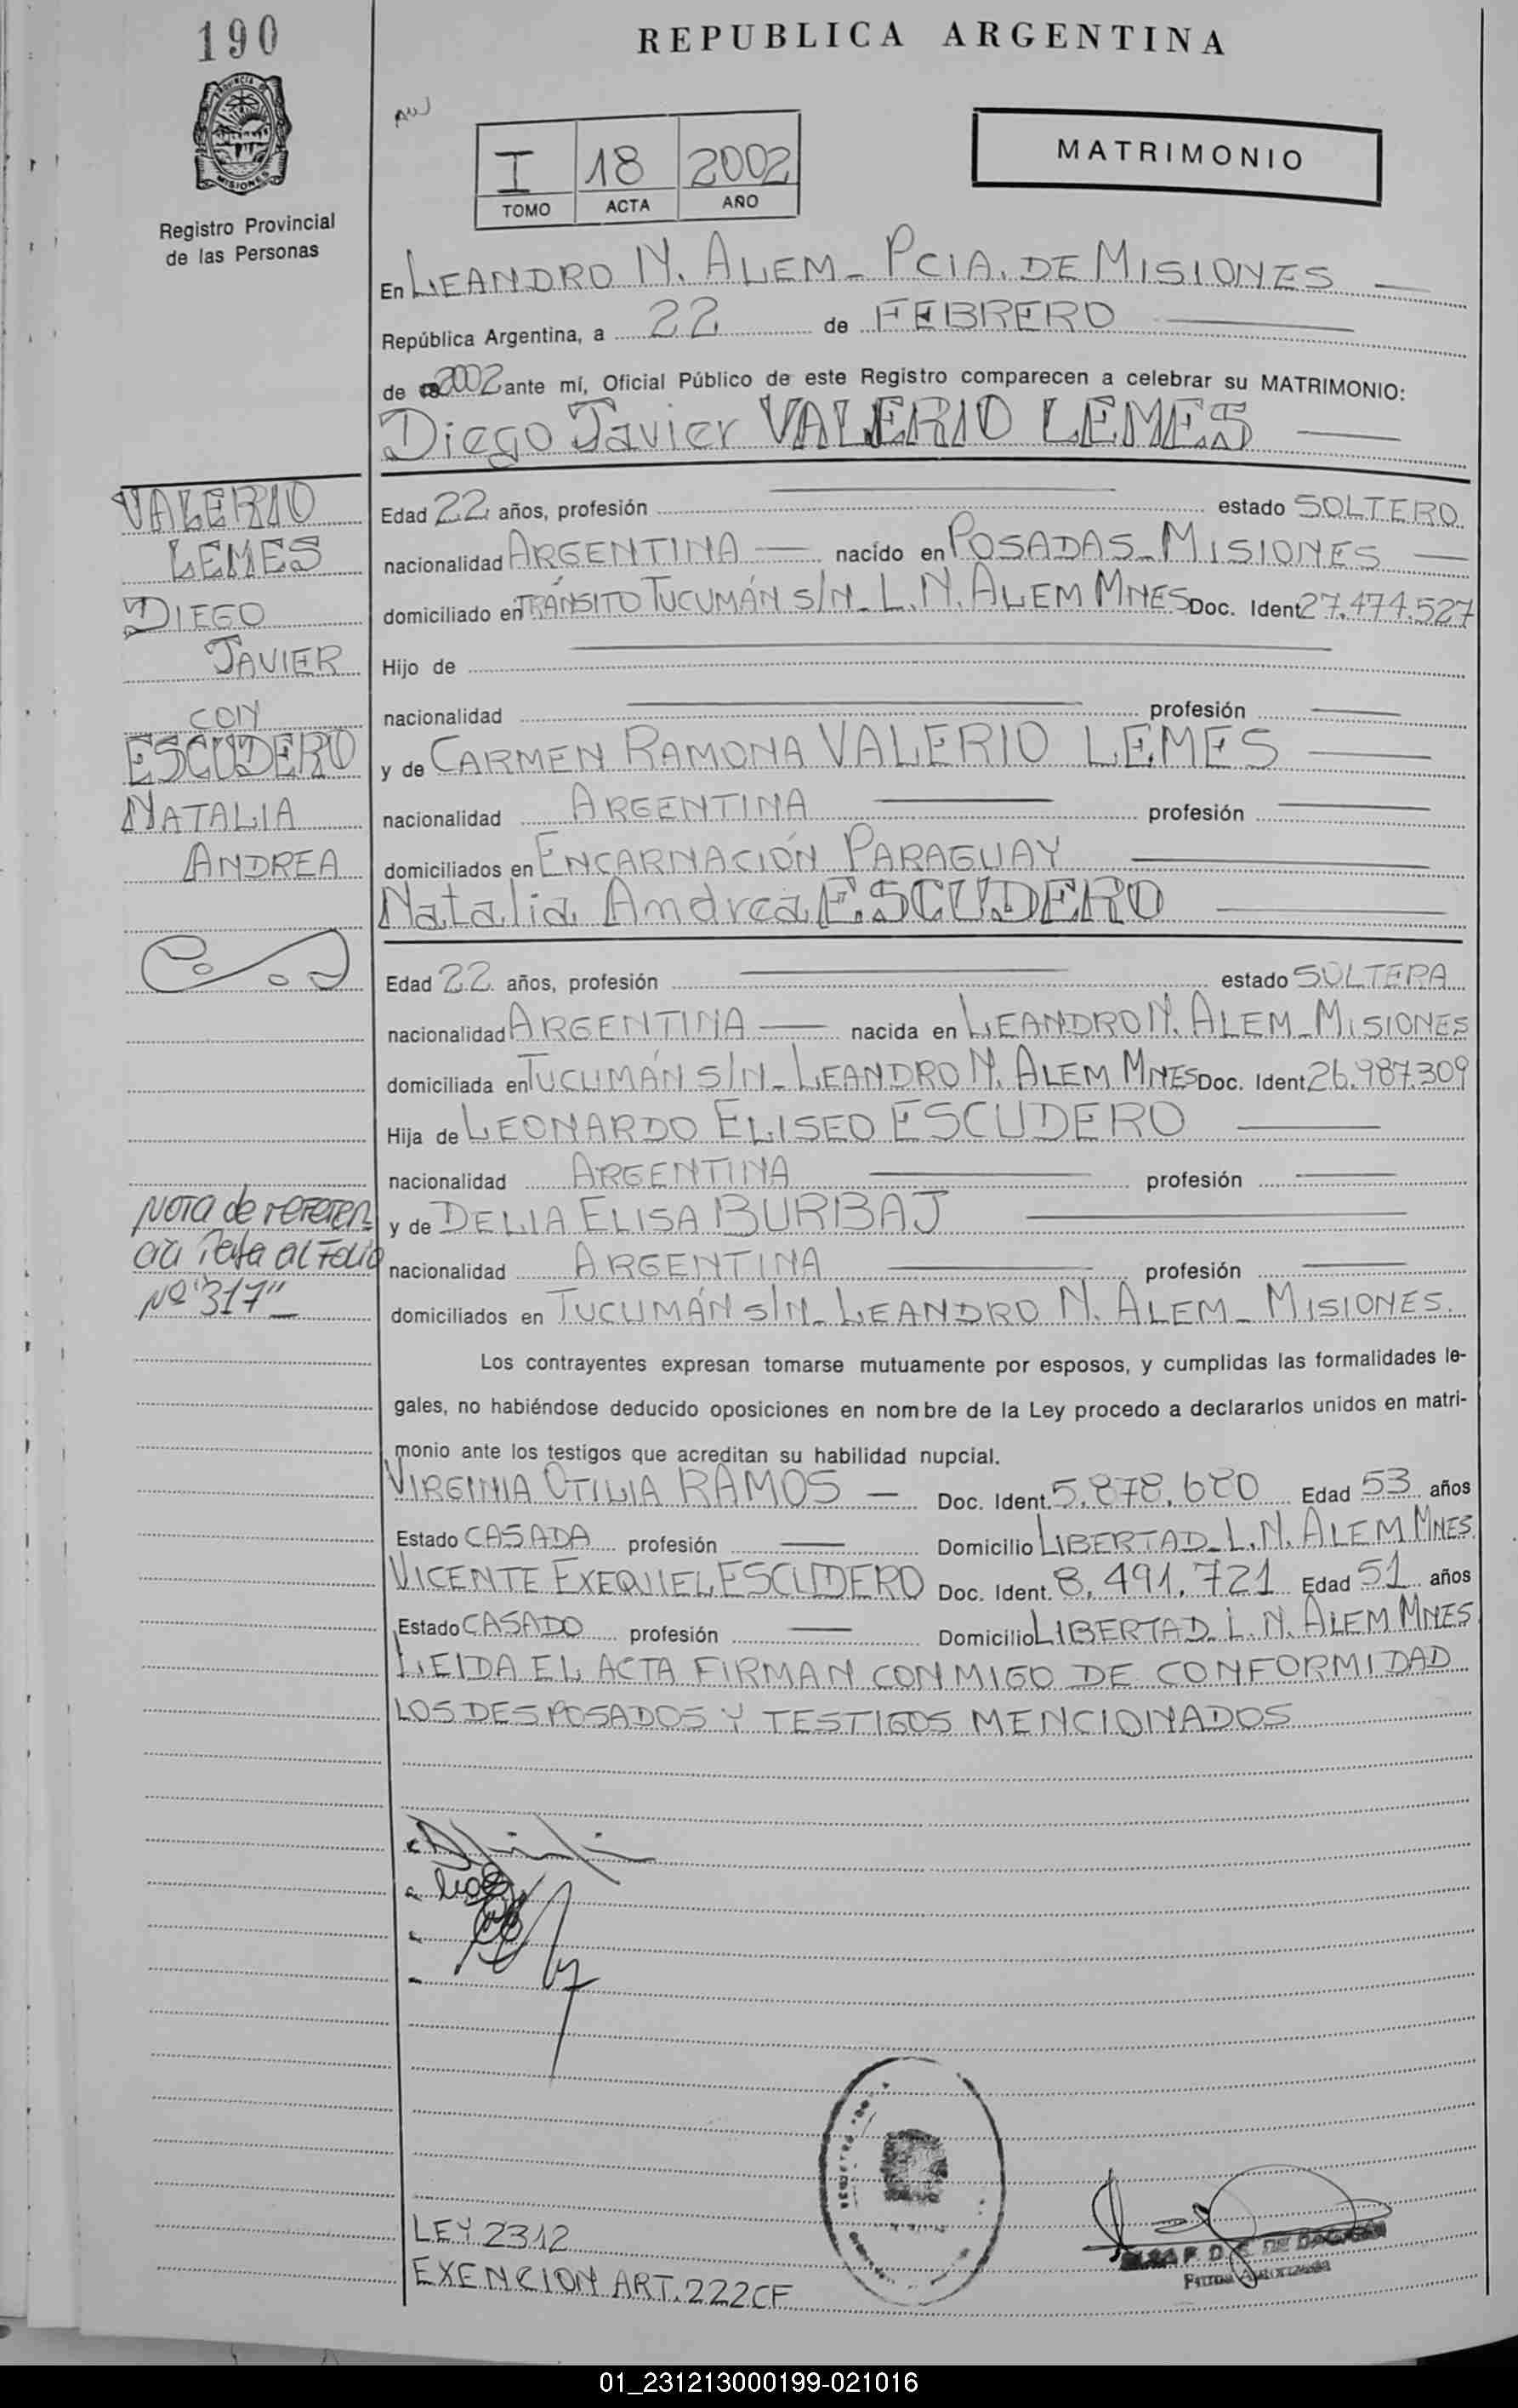 190
REPUBLICA ARGENTINA
PROVINCIA DE
MISIONES
Registro Provincial
de las Personas
I 18 2002
TOMO ACTA AÑO
MATRIMONIO
En LEANDRO N. ALEM - PCIA. DE MISIONES
República Argentina, a 22 de FEBRERO
de 2002 ante mí, Oficial Público de este Registro comparecen a celebrar su MATRIMONIO:
Diego Javier VALERIO LEMES
VALERIO
LEMES
DIEGO
JAVIER
CON
ESCUDERO
NATALIA
ANDREA
Edad 22 años, profesión estado SOLTERO
nacionalidad ARGENTINA nacido en POSADAS - MISIONES
domiciliado en TRÁNSITO TUCUMÁN S/N - L. N. ALEM MNES Doc. Ident 27.474.527
Hijo de
nacionalidad profesión
y de CARMEN RAMONA VALERIO LEMES
nacionalidad ARGENTINA profesión
domiciliados en ENCARNACIÓN PARAGUAY
Natalia Andrea ESCUDERO
Edad 22 años, profesión estado SOLTERA
nacionalidad ARGENTINA nacida en LEANDRO N. ALEM - MISIONES
domiciliada en TUCUMÁN S/N - LEANDRO N. ALEM MNES Doc. Ident. 26.987.309
Hija de LEONARDO ELISEO ESCUDERO
nacionalidad ARGENTINA profesión
y de DELIA ELISA BURBAJ
nacionalidad ARGENTINA profesión
domiciliados en TUCUMÁN S/N - LEANDRO N. ALEM - MISIONES.
NOTA de referen
cia al Folio
Nº "317"
Los contrayentes expresan tomarse mutuamente por esposos, y cumplidas las formalidades le-
gales, no habiéndose deducido oposiciones en nombre de la Ley procedo a declararlos unidos en matri-
monio ante los testigos que acreditan su habilidad nupcial.
VIRGINIA OTILIA RAMOS - Doc. Ident. 5.878.680 Edad 53 años
Estado CASADA profesión Domicilio LIBERTAD - L. N. ALEM MNES.
VICENTE EXEQUIEL ESCUDERO Doc. Ident. 8.491.721 Edad 51 años
Estado CASADO profesión Domicilio LIBERTAD - L. N. ALEM MNES
LEIDA EL ACTA FIRMAN CONMIGO DE CONFORMIDAD
LOS DESPOSADOS Y TESTIGOS MENCIONADOS
LEY 2312
EXENCION ART. 222 CF
Firma Autorizada
01_231213000199-021016